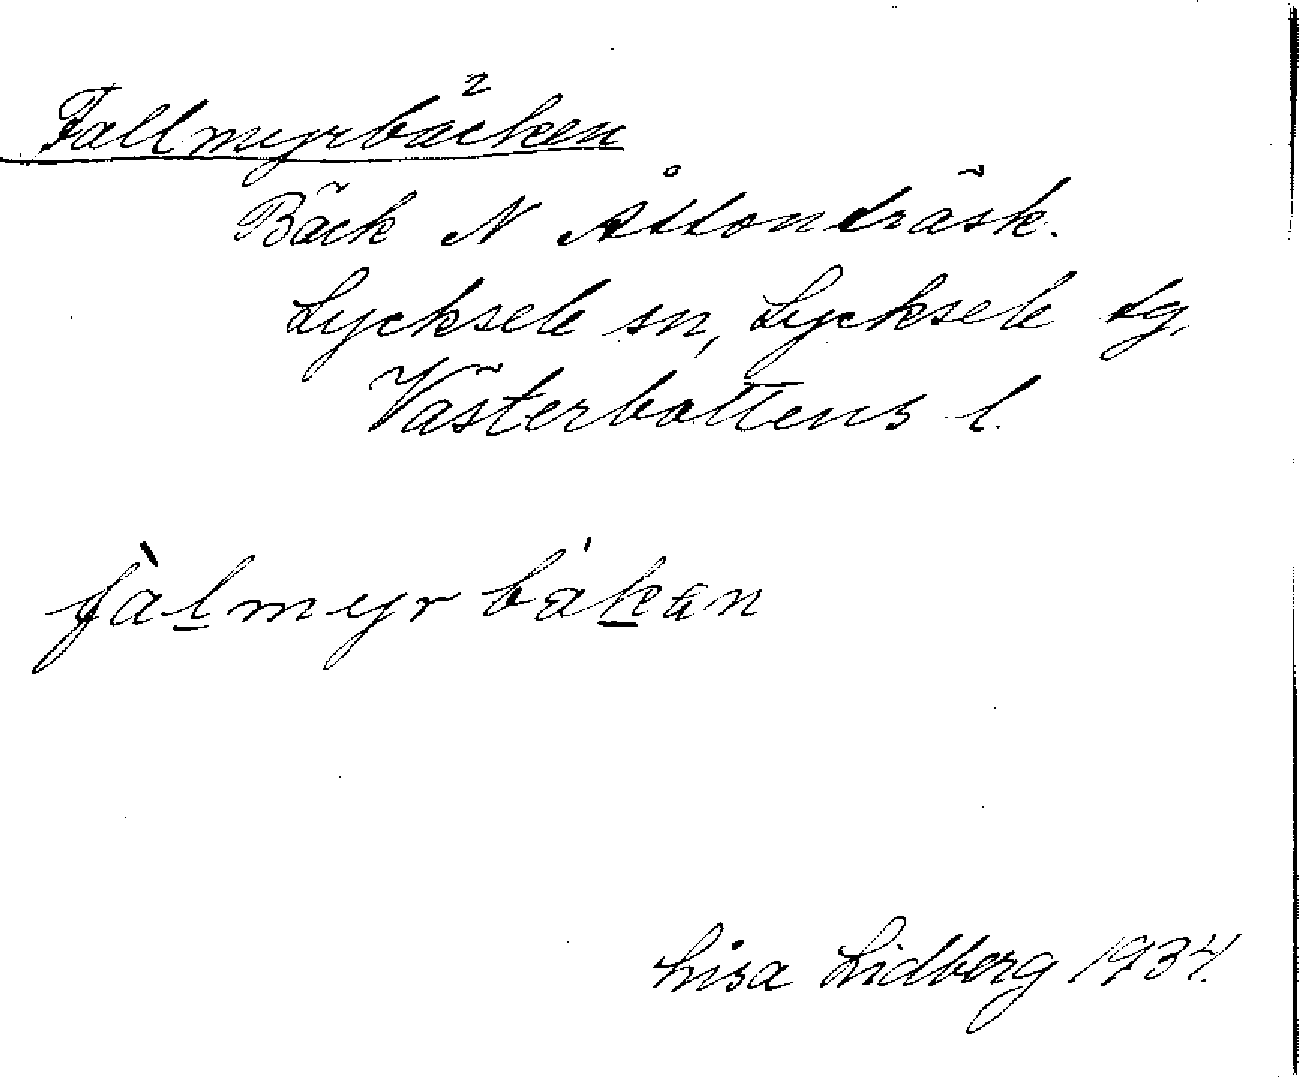 Fallmyrbäcken
Bäck N Åttonträsk.
Lycksele sn, Lycksele tg,
Västerbottens l.
fàlmyrbákan
Lisa Lidberg 1934.